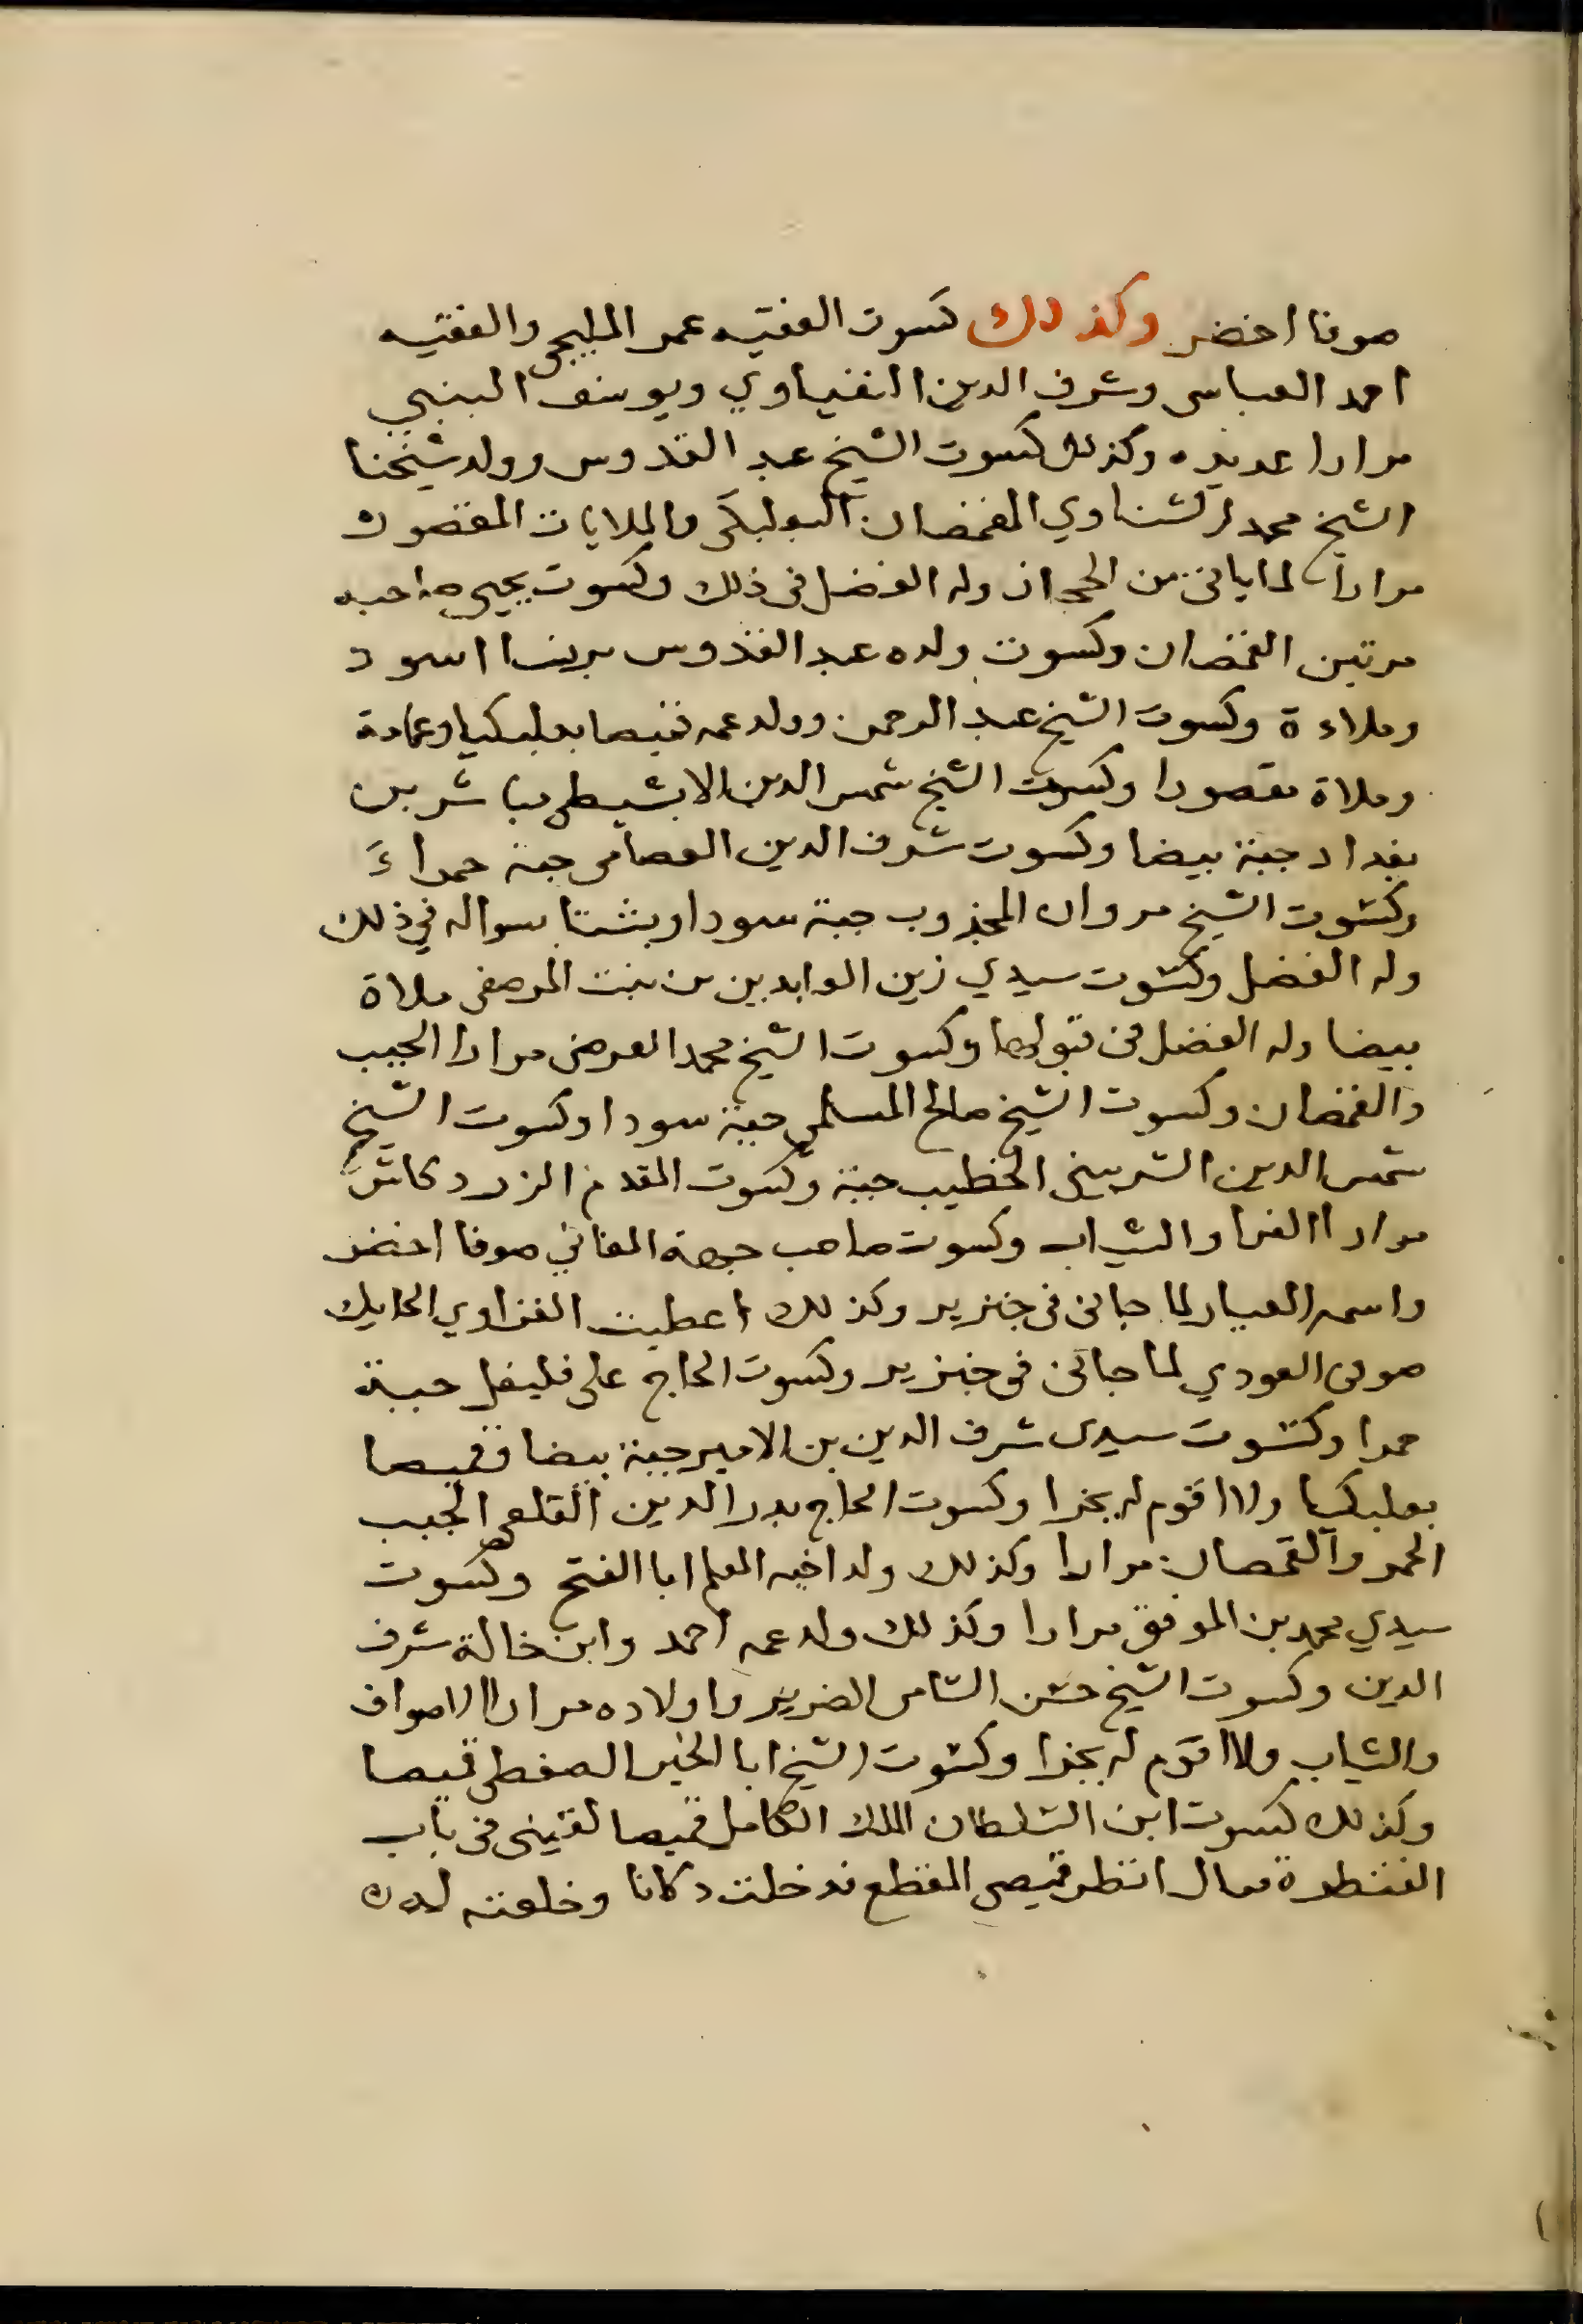 صوفا اخضر وكذلك كسوت الفقيه عمر المليجي والفقيه
احمد العباسي وشرف الدين ويوسف
مرارا عديده وكذلك كسوت الشيخ عبد القدوس وولد شيخنا
الشيخ محمد الشناوي القمصان البعلبكي والملايات المقصوره
مرارا لما ياتي من الحجاز وله الفضل في ذلك وكسوت يحيى صاحبه
مرتين القمصان وكسوت ولده عبد القدوس اسود
وملاءة وكسوت الشيخ عبد الرحمن وولد عمه قميصا بعلبكيا وعمامة
وملاة مقصورا وكسوت الشيخ شمس الدين الابشيطي مباشر بن
بغداد جبة بيضا وكسوت شرف الدين العصامي جبة حمراء
وكسوت الشيخ مروان المجذوب جبة سودا وبشتا بسواله في ذلك
وله الفضل وكسوت سيدي زين العابدين بن بنت المرصفي ملاة
بيضا وله الفضل في قبولها وكسوت الشيخ محمد العرضي مرارا الجبب
والقمصان وكسوت الشيخ صالح المسلمي جبة سودا وكسوت الشيخ
شمس الدين الشربيني الخطيب جبة وكسوت المقدم الزردكاش
مرارا الفرا والثياب وكسوت صاحب جهة المغاني صوفا اخضر
واسمه العيار لما جاني في جنزير وكذلك اعطيت الغزاوي الحايك
صوفي العودي لما جاني في جنزير وكسوت الحاج علي فليفل جبة
حمرا وكسوت سيدي شرف الدين بن الامير جبة بيضا قميصا
بعلبكيا ولا اقوم له بجزا وكسوت الحاج بدر الدين القلعي الجبب
الحمر والقمصان مرارا وكذلك ولد اخيه المعلم ابا الفتح وكسوت
سيدي محمد بن الموفق مرارا وكذلك ولد عمه احمد وابن خالة شرف
الدين وكسوت الشيخ حسن الشامي الضرير واولاده مرارا الاصواف
والثياب ولا اقوم له بجزا وكسوت الشيخ ابا الخير الصفطي قميصا
وكذلك كسوت ابن السلطان الملك الكامل قميصا لقيني في باب
القنطرة فقال انظر قميصي المقطع فدخلت دكانا وخلعته له